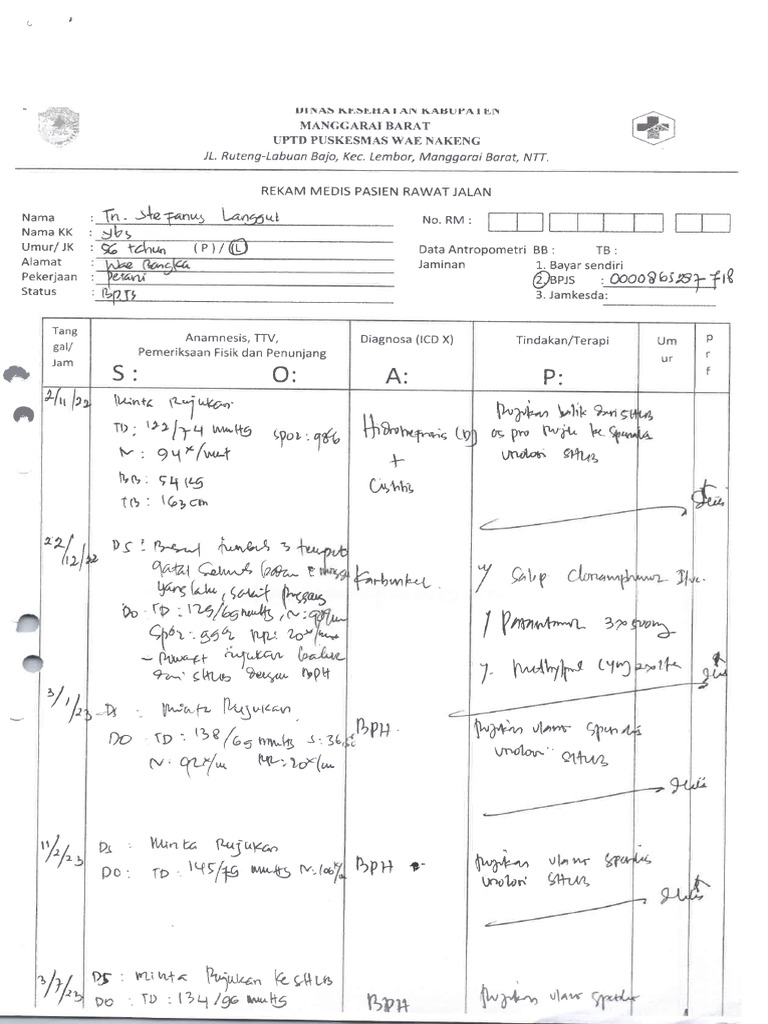 DINAS KESEHATAN KABUPATEN
MANGGARAI BARAT
UPTD PUSKESMAS WAE NAKENG
JL. Ruteng-Labuan Bajo, Kec. Lembor, Manggarai Barat, NTT.
REKAM MEDIS PASIEN RAWAT JALAN
Nama : Tn. Stefanus Langgut
No. RM :
Nama KK : ybs
Umur/ JK : 56 tahun (P) / (L)
Data Antropometri BB : TB :
Alamat : Wae Bangka
Jaminan 1. Bayar sendiri
Pekerjaan : Petani
2. BPJS : 0000865287718
Status : BPJS
3. Jamkesda:
Tang gal/ Jam
Anamnesis, TTV, Pemeriksaan Fisik dan Penunjang
Diagnosa (ICD X)
Tindakan/Terapi
Um ur
P r f
S : O: A: P:
2/11/22
Minta Rujukan
TD: 122/74 mmHg SPO2: 98%
N: 94x/mnt
BB: 54 kg
TB: 163 cm
Hidronefrosis (D)
+
Cistitis
Rujukan balik dari SHLB
pro Rujuk ke Spesialis
urologi SHLB
22/12/22
DS : Bisul tumbuh 3 tempat
gatal seluruh badan
yang lalu, sakit
DO : TD: 129/69 mmHg, N:
SpO2: 99% RR: 20x/mnt
- Riwayat rujukan balik
dari SHLB dengan BPH
Karbunkel
Salep
Paracetamol 3x500mg
(4mg)
3/1/23
DS : Minta Rujukan
DO : TD: 138/69 mmHg S: 36,5
N: 92x/m RR: 20x/m
BPH
Rujukan ulang spesialis
urologi SHLB
11/2/23
DS : Minta Rujukan
DO : TD: 145/75 mmHg N:100x/m
BPH
Rujukan ulang spesialis
urologi SHLB
3/7/23
DS : Minta Rujukan ke SHLB
DO : TD: 134/96 mmHg
BPH
Rujukan ulang spesialis